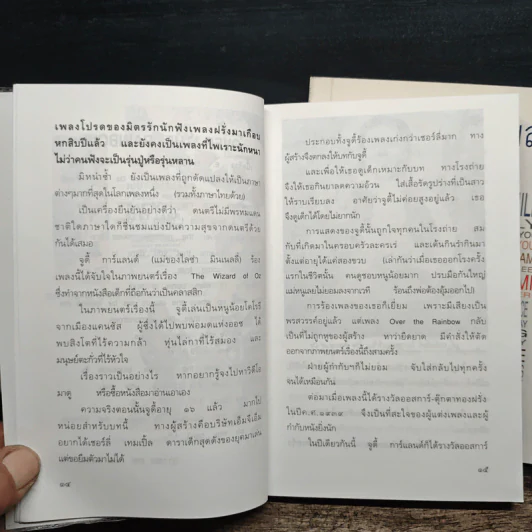 เพลงโปรดของมิตรรักนักฟังเพลงฝรั่งมาเกือบ
หกสิบปีแล้ว และยังคงเป็นเพลงที่ไพเราะนักหนา
ไม่ว่าคนฟังจะเป็นรุ่นปู่หรือรุ่นหลาน
มิหนำซ้ำ ยังเป็นเพลงที่ถูกดัดแปลงให้เป็นภาษา
ต่างๆมากที่สุดในโลกเพลงหนึ่ง (รวมทั้งภาษาไทยด้วย)
เป็นเครื่องยืนยันอย่างดีว่า ดนตรีไม่มีพรหมแดน
ชาติใดภาษาใดก็ชื่นชมแบ่งปันความสุขจากดนตรีด้วย
กันได้เสมอ
จูดี้ การ์แลนด์ (แม่ของไลซ่า มินเนลลี่) ร้อง
เพลงนี้ได้จับใจในภาพยนตร์เรื่อง The Wizard of Oz
ซึ่งทำจากหนังสือเด็กที่ถือกันว่าเป็นคลาสสิก
ในภาพยนตร์เรื่องนี้ จูดี้เล่นเป็นหนูน้อยโดโรธี
จากเมืองแคนซัส ผู้ซึ่งได้ไปพบพ่อมดแห่งออซ ได้
พบสิงโตที่ไร้ความกล้า หุ่นไล่กาที่ไร้สมอง และ
มนุษย์ตะกั่วที่ไร้หัวใจ
เรื่องราวเป็นอย่างไร หากอยากรู้จงไปหาวีดีโอ
มาดู หรือซื้อหนังสือมาอ่านเอาเอง
ความจริงตอนนั้นจูดี้อายุ ๑๖ แล้ว มากไป
หน่อยสำหรับบทนี้ ทางผู้สร้างคือบริษัทเอ็มจีเอ็ม
อยากได้เชอร์ลี่ เทมเปิ้ล ดาราเด็กสุดดังของยุคมาเล่น
แต่ขอยืมตัวมาไม่ได้
๑๔
ประกอบทั้งจูดี้ร้องเพลงเก่งกว่าเชอร์ลี่มาก ทาง
ผู้สร้างจึงตกลงให้บทกับจูดี้
และเพื่อให้เธอดูเด็กเหมาะกับบท ทางโรงถ่าย
จึงให้เธอกินยาลดความอ้วน ใส่เสื้อรัดรูปร่างที่เป็นสาว
ให้ราบเรียบลง อาศัยว่าจูดี้ไม่ค่อยสูงอยู่แล้ว เธอ
จึงดูเด็กได้โดยไม่ยากนัก
การแสดงของจูดี้นั้นถูกใจทุกคนในโรงถ่าย สม
กับที่เกิดมาในครอบครัวละครเร่ และเต้นกินรำกินมา
ตั้งแต่อายุได้แค่สองขวบ (เล่ากันว่าเมื่อเธอออกโรงครั้ง
แรกในชีวิตนั้น คนดูชอบหนูน้อยมาก ปรบมือกันใหญ่
แม่หนูเลยไม่ยอมลงจากเวที ร้อนถึงพ่อต้องอุ้มออกไป)
การร้องเพลงของเธอก็เยี่ยม เพราะมีเสียงเป็น
พรสวรรค์อยู่แล้ว แต่เพลง Over the Rainbow กลับ
เป็นที่ไม่ถูกหูของผู้สร้าง หาว่ายืดยาด มีคำสั่งให้ตัด
ออกจากภาพยนตร์เรื่องนี้ถึงสามครั้ง
ฝ่ายผู้กำกับฯก็ไม่ยอม จับใส่กลับไปทุกครั้ง
จนได้เหมือนกัน
ต่อมาเมื่อเพลงนี้ได้รางวัลออสการ์-ตุ๊กตาทองฝรั่ง
ในปีค.ศ.๑๙๓๙ จึงเป็นที่สะใจของผู้แต่งเพลงและผู้
กำกับหนังยิ่งนัก
ในปีเดียวกันนี้ จูดี้ การ์แลนด์ก็ได้รางวัลออสการ์
๑๕